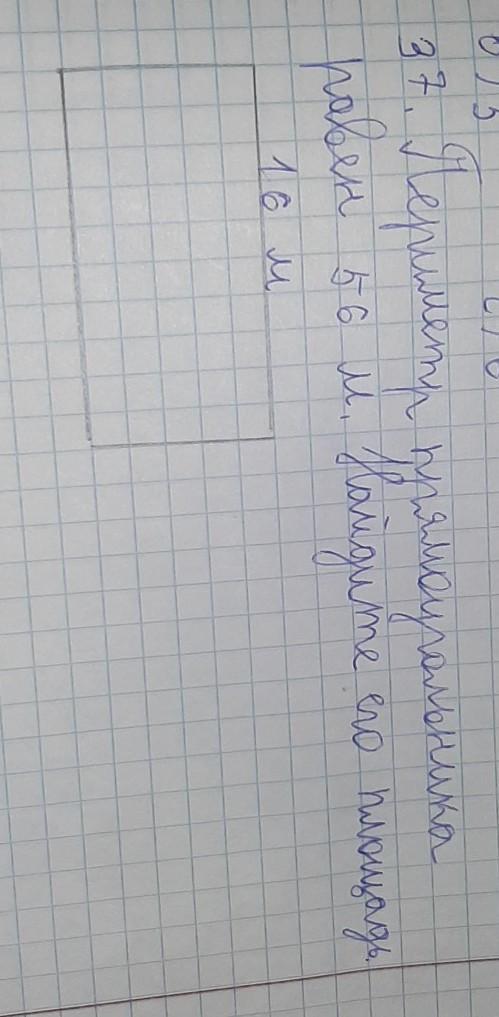 37. Периметр прямоугольника
равен 56 м. Найдите его площадь.
16 м